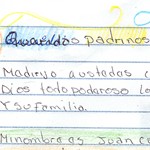 Queridos padrinos
Madrevo austedes
Dios todo poderoso lo
Y su familia.
Minombre es Juan ca